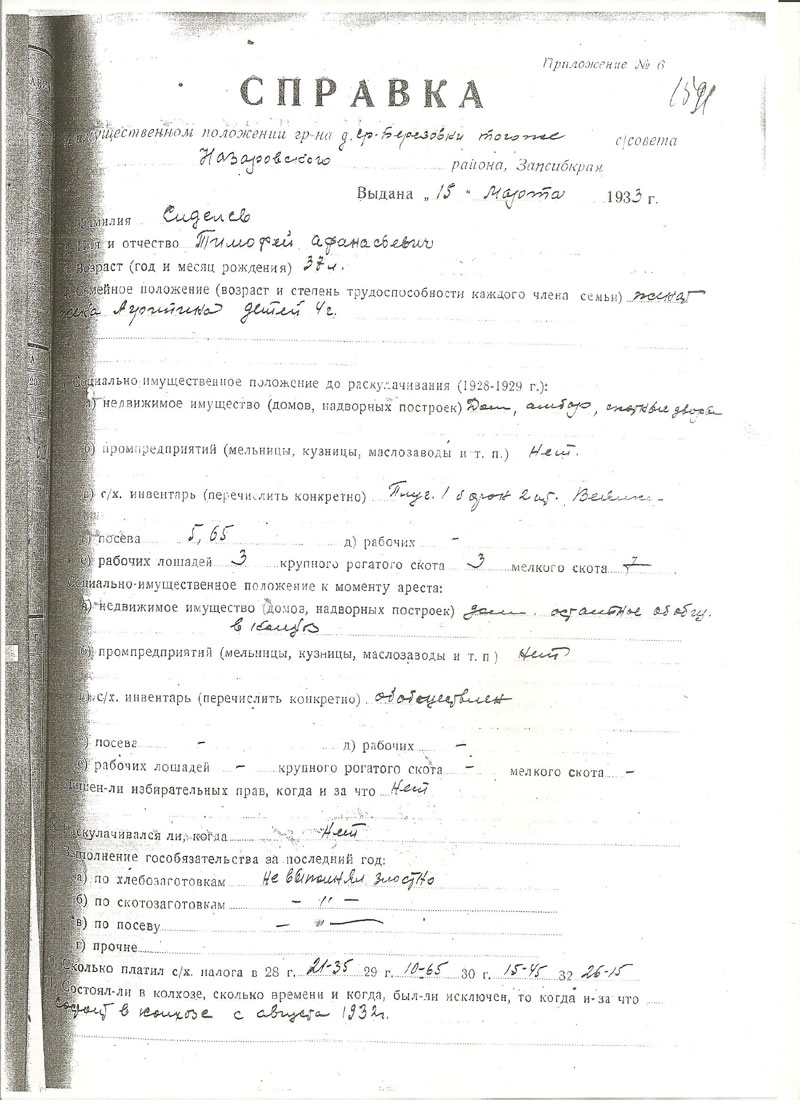 Приложение № 6
1591
СПРАВКА
имущественном положении гр-на д. Ср-Березовки того же с/совета
Назаровского района, Запсибкрая
Выдана „15" Марта 1933 г.
Фамилия Сиделев
Имя и отчество Тимофей Афанасьевич
Возраст (год и месяц рождения) 37 л.
Семейное положение (возраст и степень трудоспособности каждого члена семьи) женат
жена детей 4 ч.
Социально-имущественное положение до раскулачивания (1928-1929 г.):
а) недвижимое имущество (домов, надворных построек) Дом, амбар, скотные дворы
б) промпредприятий (мельницы, кузницы, маслозаводы и т. п.) Нет.
в) с/х. инвентарь (перечислить конкретно) Плуг. 1 борон 2 шт.
г) посева 5,65 д) рабочих -
е) рабочих лошадей 3 крупного рогатого скота 3 мелкого скота 7
Социально-имущественное положение к моменту ареста:
а) недвижимое имущество (домов, надворных построек) дом. остатное обобщ.
в колхоз
б) промпредприятий (мельницы, кузницы, маслозаводы и т. п) Нет
в) с/х. инвентарь (перечислить конкретно) обобществлен
г) посева - д) рабочих -
е) рабочих лошадей - крупного рогатого скота - мелкого скота -
Лишен-ли избирательных прав, когда и за что Нет
Раскулачивался ли, когда Нет
Выполнение гособязательства за последний год:
а) по хлебозаготовкам не выполнял злостно
б) по скотозаготовкам - " -
в) по посеву - " -
г) прочие
Сколько платил с/х. налога в 28 г. 21-35 29 г. 10-65 30 г. 15-45 32 26-15
Состоял-ли в колхозе, сколько времени и когда, был-ли исключен, то когда и-за что
состоит в колхозе с августа 1932 г.